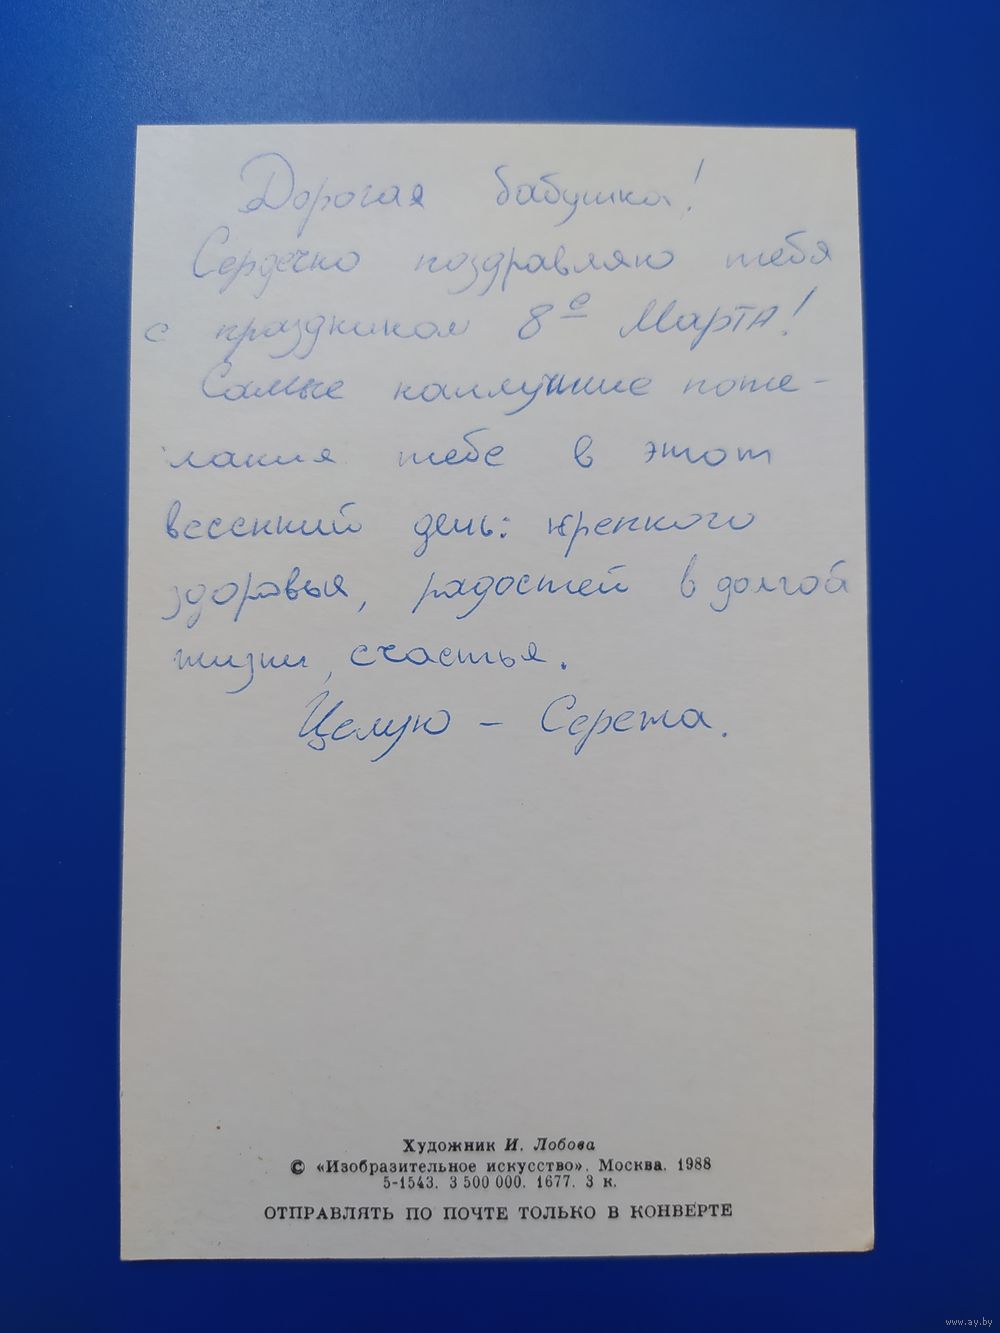 Дорогая бабушка!
Сердечно поздравляю тебя
с праздником 8е Марта!
Самые наилучшие поже-
лания тебе в этот
весенний день: крепкого
здоровья, радостей в долгой
жизни, счастья.
Целую – Сережа.
Художник И. Лобова
© «Изобразительное искусство». Москва. 1988
5-1543. 3 500 000. 1677. 3 к.
ОТПРАВЛЯТЬ ПО ПОЧТЕ ТОЛЬКО В КОНВЕРТЕ
www.ay.by